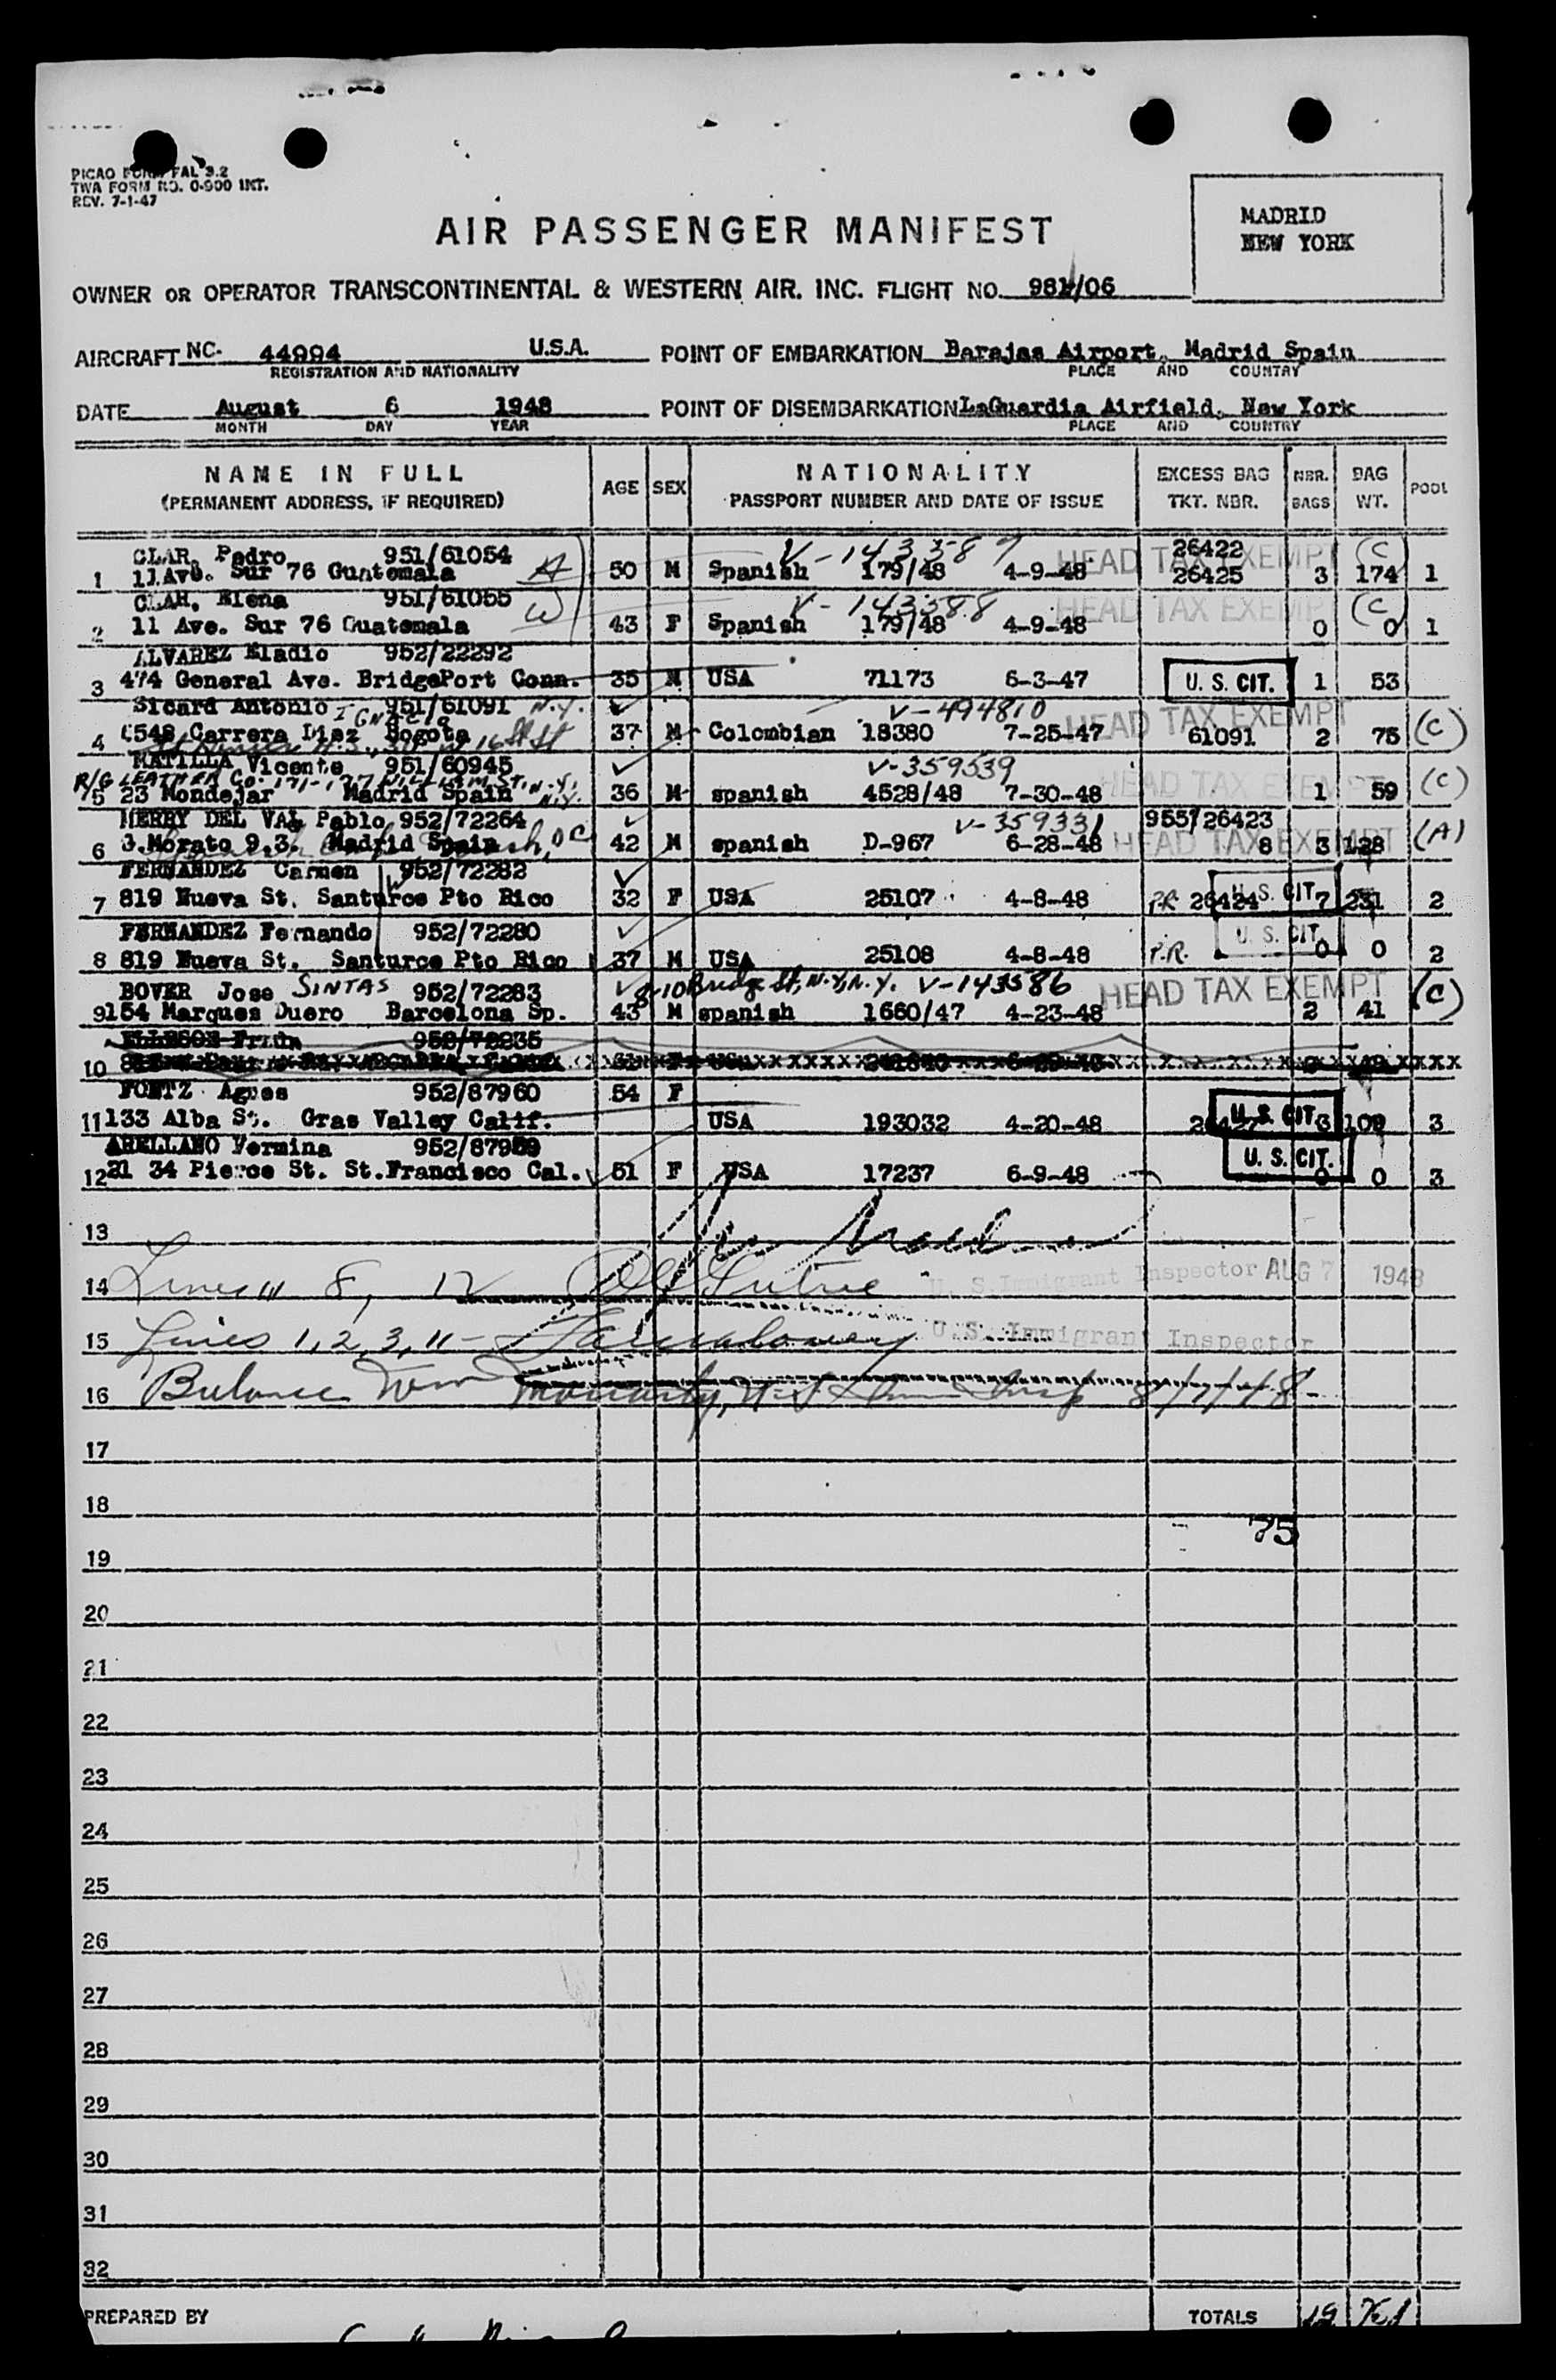 PICAO FORM FAL 3.2
TWA FORM NO. 0-900 INT.
REV. 7-1-47
MADRID
NEW YORK
AIR PASSENGER MANIFEST
OWNER OR OPERATOR TRANSCONTINENTAL & WESTERN AIR. INC. FLIGHT NO. 981/06
AIRCRAFT NC. 44994 U.S.A. POINT OF EMBARKATION Barajas Airport, Madrid Spain
REGISTRATION AND NATIONALITY PLACE AND COUNTRY
DATE August 6 1948 POINT OF DISEMBARKATION LaGuardia Airfield, New York
MONTH DAY YEAR PLACE AND COUNTRY
NAME IN FULL AGE SEX NATIONALITY EXCESS BAG NBR. BAG POOL
(PERMANENT ADDRESS, IF REQUIRED) PASSPORT NUMBER AND DATE OF ISSUE TKT. NBR. BAGS WT.
CLAR, Pedro 951/61054 V-143587 26422 (C)
1 11 Ave. Sur 76 Guatemala 50 M Spanish 179/48 4-9-48 HEAD TAX EXEMPT 26425 3 174 1
CLAR, Elena 951/61055 W V-143588 HEAD TAX EXEMP (C)
2 11 Ave. Sur 76 Guatemala 43 F Spanish 179/48 4-9-48 0 0 1
ALVAREZ Eladio 952/22292
3 474 General Ave. BridgePort Conn. 35 M USA 71173 6-3-47 U. S. CIT. 1 53
Sicard Antonio IGNACIO 951/61091 N.Y. V-494810 HEAD TAX EXEMPT
4 Carrera Diez Bogota 37 M Colombian 18380 7-25-47 61091 2 75 (C)
MATILLA Vicente 951/60945 V-359539 HEAD TAX EXEMPT
R/G LEATHER Co. 171-177 WILLIAM ST. N.Y.
5 23 Mondejar Madrid Spain N.Y. 36 M spanish 4528/48 7-30-48 1 59 (C)
MERRY DEL VAL Pablo 952/72264 V-359331 955/26423
6 Morato 9.3. Madrid Spain DC 42 M spanish D-967 6-28-48 HEAD TAX EXEMPT 8 3 128 (A)
FERNANDEZ Carmen 952/72282
7 819 Nueva St. Santurce Pto Rico 32 F USA 25107 4-8-48 PR 26424 U. S. CIT. 7 231 2
FERNANDEZ Fernando 952/72280 U. S. CIT.
8 819 Nueva St. Santurce Pto Rico 37 M USA 25108 4-8-48 P.R. 0 0 2
BOVER Jose SINTAS 952/72283 8-10 Bridge St, N.Y, N.Y. V-143586 HEAD TAX EXEMPT (C)
9 154 Marques Duero Barcelona Sp. 43 M spanish 1660/47 4-23-48 2 41
10
Agnes 952/87960 54 F
11 133 Alba St. Gras Valley Calif. USA 193032 4-20-48 U. S. CIT. 3 109 3
ARELLANO Vermina 952/87959
12 21 34 Pierce St. St.Francisco Cal. 51 F USA 17237 6-9-48 U. S. CIT. 0 0 3
13
14 Lines 8, 12 U. S. Immigrant Inspector AUG 7 1948
15 Lines 1, 2, 3, 11 - U. S. Immigrant Inspector
16 Balance Wm Moriarty, 8/7/48
17
18
75
19
20
21
22
23
24
25
26
27
28
29
30
31
32
PREPARED BY TOTALS